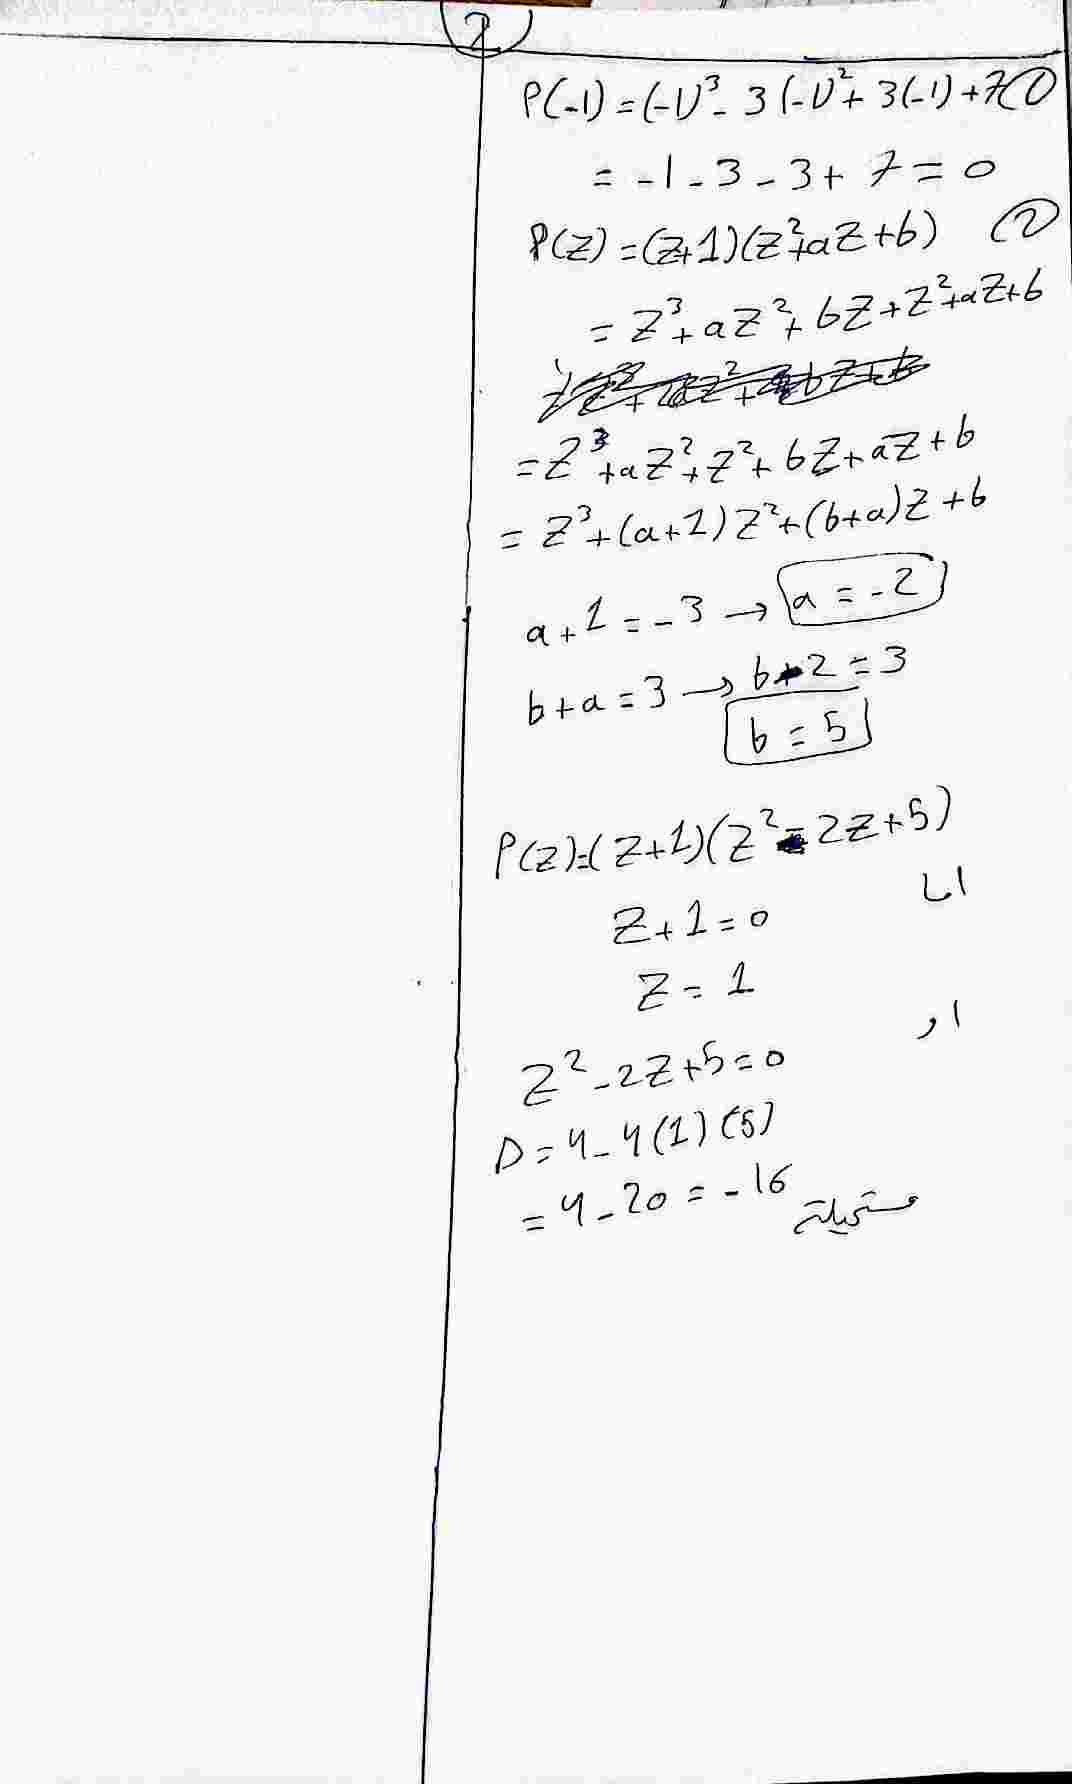 2
P(-1) = (-1)³ - 3(-1)² + 3(-1) + 7 ①
= -1 - 3 - 3 + 7 = 0
P(z) = (z+1)(z²+az+b) ②
= z³ + az² + bz + z² + az + b
= z³ + az² + z² + bz + az + b
= z³ + (a+1)z² + (b+a)z + b
a + 1 = -3 → a = -2
b + a = 3 → b - 2 = 3
b = 5
P(z) = (z+1)(z² - 2z + 5)
اما
z + 1 = 0
z = 1
او
z² - 2z + 5 = 0
D = 4 - 4(1)(5)
= 4 - 20 = -16 مستحيلة